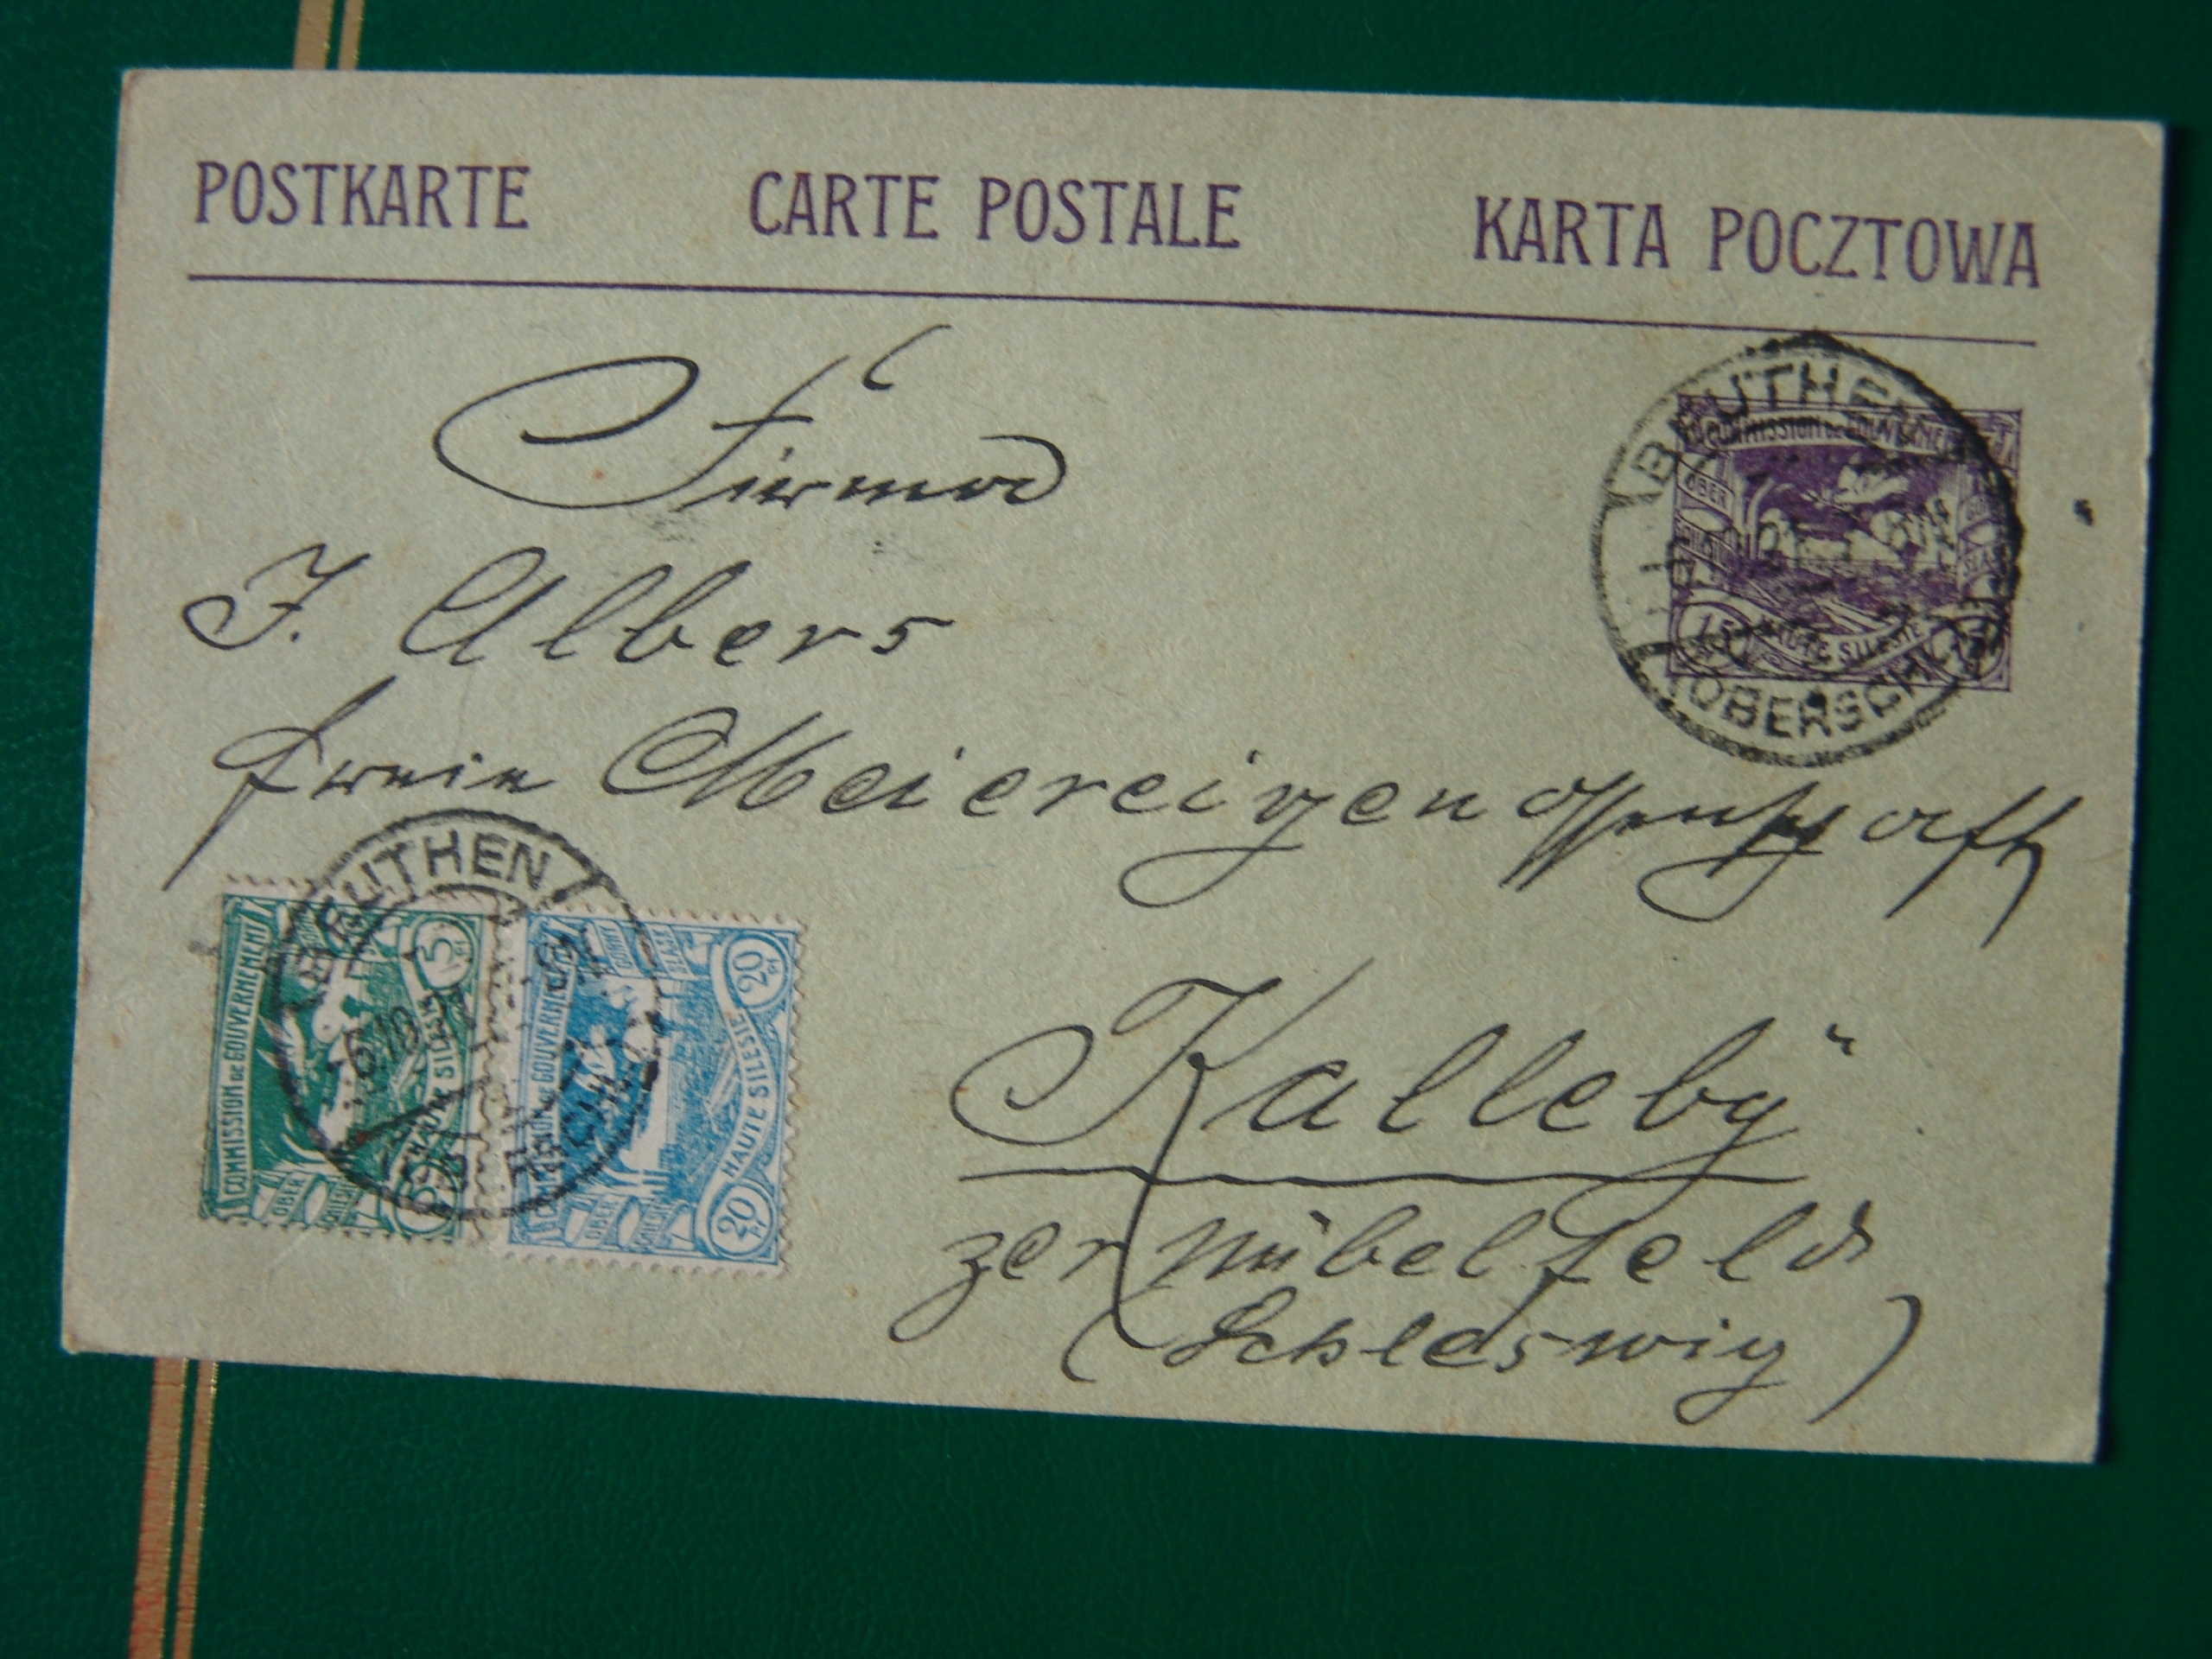 POSTKARTE CARTE POSTALE KARTA POCZTOWA
Firma
J. Albers
freie Meiereigenossenschaft
Kalleby
per Nübelfeld
(Schleswig)
BEUTHEN
OBERSCHL
COMMISSION DE GOUVERNEMENT
OBER
15
HAUTE SILESIE
BEUTHEN
6.10.21
OBERSCHL
COMMISSION DE GOUVERNEMENT
5
HAUTE SILESIE
OBER
20
HAUTE SILESIE
20
OBER